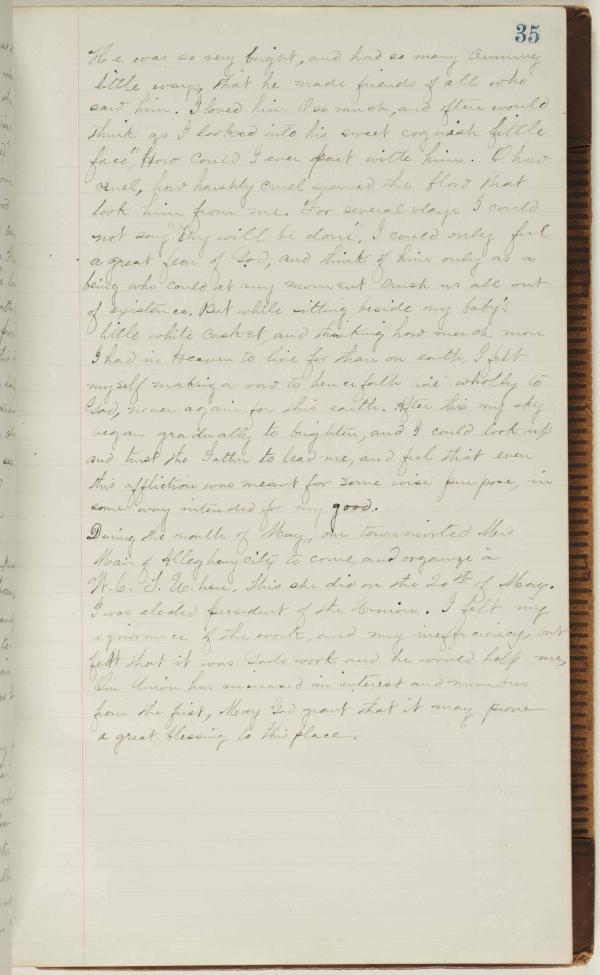 35
He was so very bright, and had so many cunning
little ways, that he made friends of all who
saw him. I loved him O so much, and often would
think as I looked into his sweet roguish little
face", How could I ever part with him. O how
cruel, how harshly cruel seemed the blow that
took him from me. For several days I could
not say "Thy will be done", I could only feel
a great fear of God, and think of him only as a
being who could at any moment crush us all out
of existence. But while sitting beside my baby's
little white casket, and thinking how much more
I had in Heaven to live for than on earth, I felt
myself making a vow to henceforth live wholly to
God, never again for this earth. After this my sky
began gradually to brighten, and I could look up
and trust the Father to lead me, and feel that even
this affliction was meant for some wise purpose, in
some way intended for my good.
During the month of May, our town invited Mrs
of Allegheny City to come and organize a
W. C. T. U. here, this she did on the 20th of May.
I was elected president of the Union. I felt my
ignorance of the work, and my inefficiency, but
felt that it was Gods work and he would help me,
Our Union has increased in interest and numbers
from the first, May God grant that it may prove
a great blessing to this place.